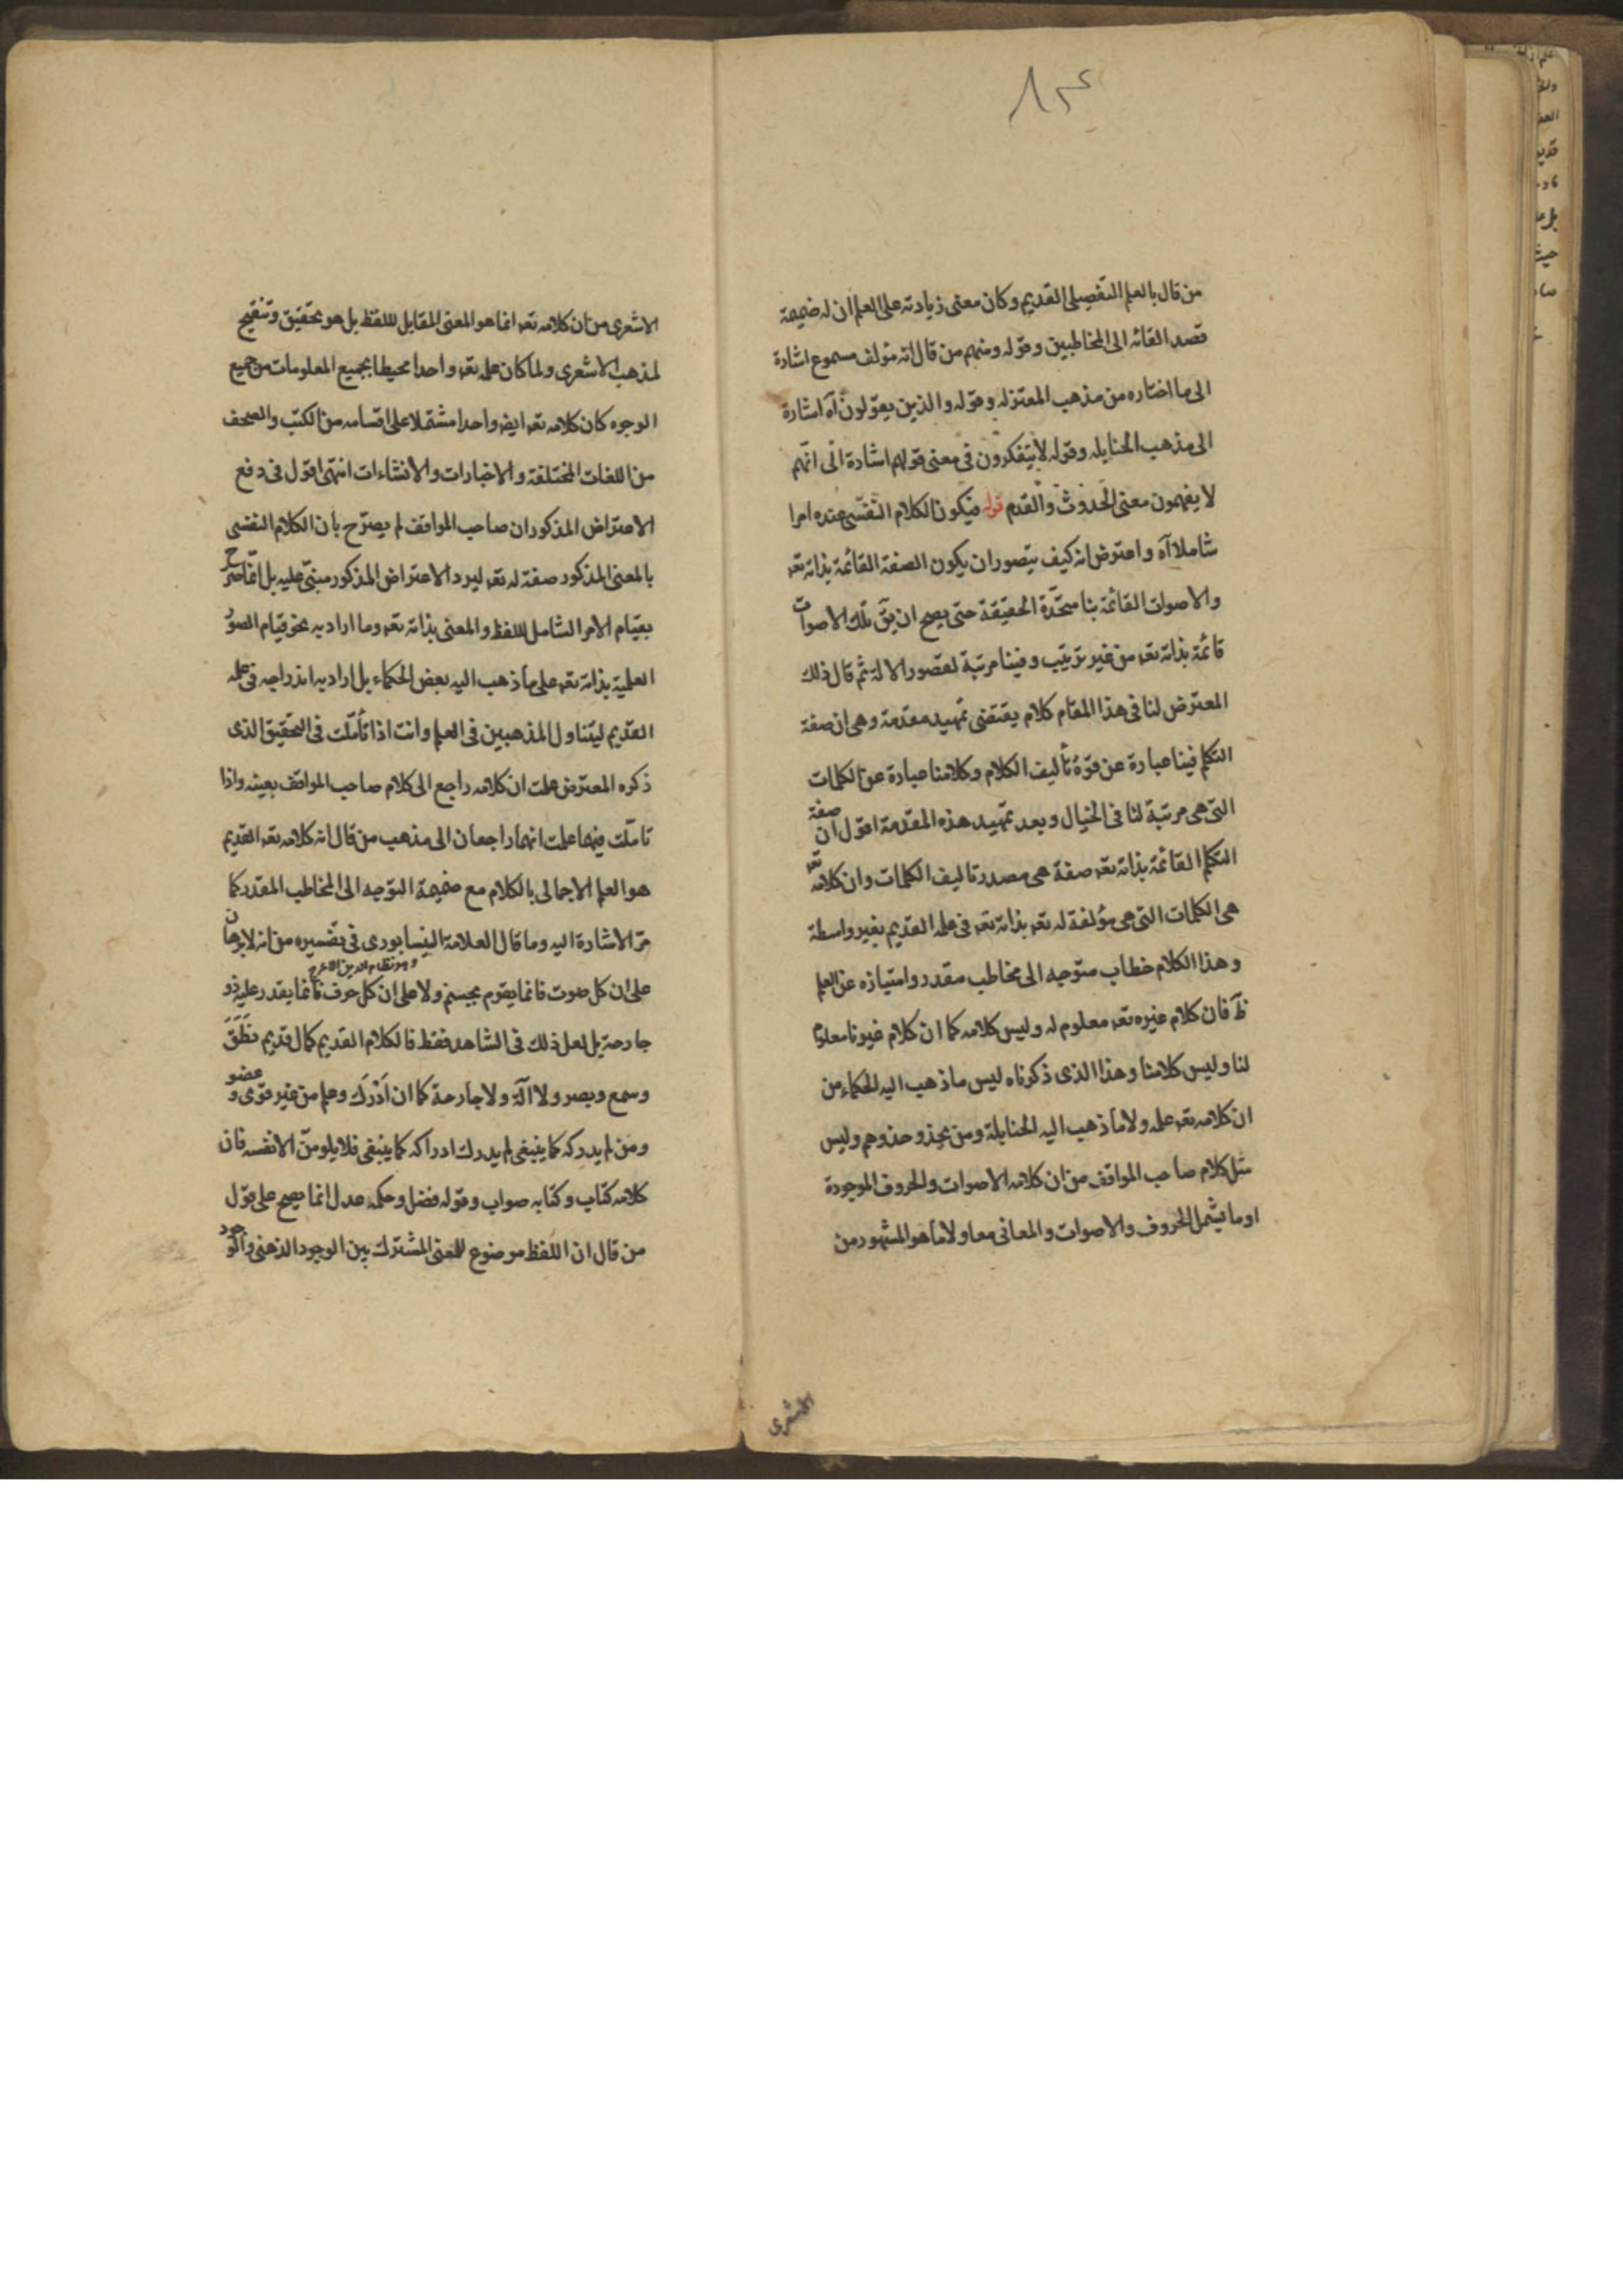 ٨٣٤
من قال بالعلم التفصيلى القديم وكان معنى زيادته على العلم ان له ضميمة
قصد القائه الى المخاطبين وقوله ومنهم من قال انه مؤلف مسموع اشارة
الى ما اختاره من مذهب المعتزله وقوله والذين يقولون آه اشارة
الى مذهب الحنابله وقوله لا يتفكرون فى معنى قولهم اشارة الى انهم
لا يفهمون معنى الحدوث والقدم قوله فيكون الكلام النفسى عنده امرا
شاملا آه واعترض انه كيف يتصور ان يكون الصفة القائمة بذاته تعه
والاصوات القائمة بنا متحدة الحقيقة حتى يصح ان يق تلك الاصوات
قائمة بذاته تعه من غير ترتيب وفينا مرتبة لقصور الالة ثم قال ذلك
المعترض لنا فى هذا المقام كلام يقتضى تمهيد مقدمة وهى ان صفة
التكلم فينا عبارة عن قوة تأليف الكلام وكلامنا عبارة عن الكلمات
التى هى مرتبة لنا فى الخيال وبعد تمهيد هذه المقدمة اقول ان صفة
التكلم القائمة بذاته تعه صفة هى مصدر تاليف الكلمات وان كلامه تعه
هى الكلمات التى هى مؤلفة له تعه بذاته تعه فى علمه القديم بغير واسطة
وهذا الكلام خطاب متوجه الى مخاطب مقدر وامتيازه عن العلم
ظ فان كلام غيره تعه معلوم له وليس كلامه كما ان كلام غيرنا معلوم
لنا وليس كلامنا وهذا الذى ذكرناه ليس ما ذهب اليه الحكماء من
ان كلامه تعه علمه ولا ما ذهب اليه الحنابلة ومن يحذو حذوهم وليس
مثل كلام صاحب المواقف من ان كلامه الاصوات والحروف الموجودة
او ما يشمل الحروف والاصوات والمعانى معا ولا ما هو المشهور من
الاشعرى
الاشعرى من ان كلامه تعه انما هو المعنى المقابل للفظ بل هو تحقيق وتنقيح
لمذهب الاشعرى ولما كان علمه تعه واحدا محيطا بجميع المعلومات من جميع
الوجوه كان كلامه تعه ايض واحدا مشتملا على اقسامه من الكتب والصحف
من اللغات المختلفة والاخبارات والانشاءات انتهى اقول فى دفع
الاعتراض المذكور ان صاحب المواقف لم يصرح بان الكلام النفسى
بالمعنى المذكور صفة له تعه ليرد الاعتراض المذكور مبنى عليه بل انما صرح
بقيام الامر الشامل للفظ والمعنى بذاته تعه وما اراد به نحو قيام الصور
العلمية بذاته تعه على ما ذهب اليه بعض الحكماء بل اراد به اندراجه فى علمه
القديم ليتناول المذهبين فى العلم وانت اذا تأملت فى التحقيق الذى
ذكره المعترض علمت ان كلامه راجع الى كلام صاحب المواقف بعينه واذا
تاملت فيهما علمت انهما راجعان الى مذهب من قال انه كلامه تعه القديم
هو العلم الاجمالى بالكلام مع ضميمة التوجه الى المخاطب المقدر كما
مر الاشارة اليه وما قال العلامة النيسابورى فى تفسيره من انه لا برهان
وهو نظام الدين الاعرج
على ان كل صوت فانما يقوم بجسم ولا على ان كل حرف فانما يقدر عليه ذو
جارحة بل لعل ذلك فى الشاهد فقط فالكلام القديم كمال قديم نطق
وسمع وبصر ولا آلة ولا جارحة كما ان ادرك وعلم من غير قوى وعضو
ومن لم يدركه كما ينبغى لم يدرك ادراكه كما ينبغى فلا يلومن الا نفسه فان
كلامه كتاب وكتابه صواب وقوله فضل وحكمه عدل انما يصح على قول
من قال ان اللفظ موضوع للمعنى المشترك بين الوجود الذهنى والوجود